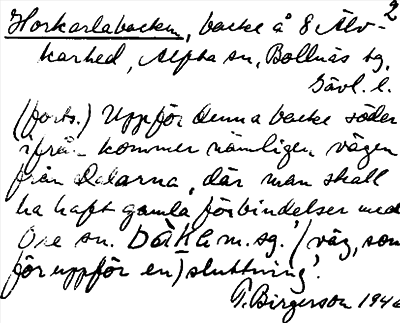 2
Horkarlabacken, backe å 8 Älv-
karhed, Alpha sn, Bollnäs tg.
Gävl. l.
(forts.) Uppför denna backe söder
ifrån kommer nämligen vägen
från Dalarna, där man skall
ha haft gamla förbindelser med
Ore sn. m. sg. (väg, som
för uppför en) sluttning'.
T. Birgerson